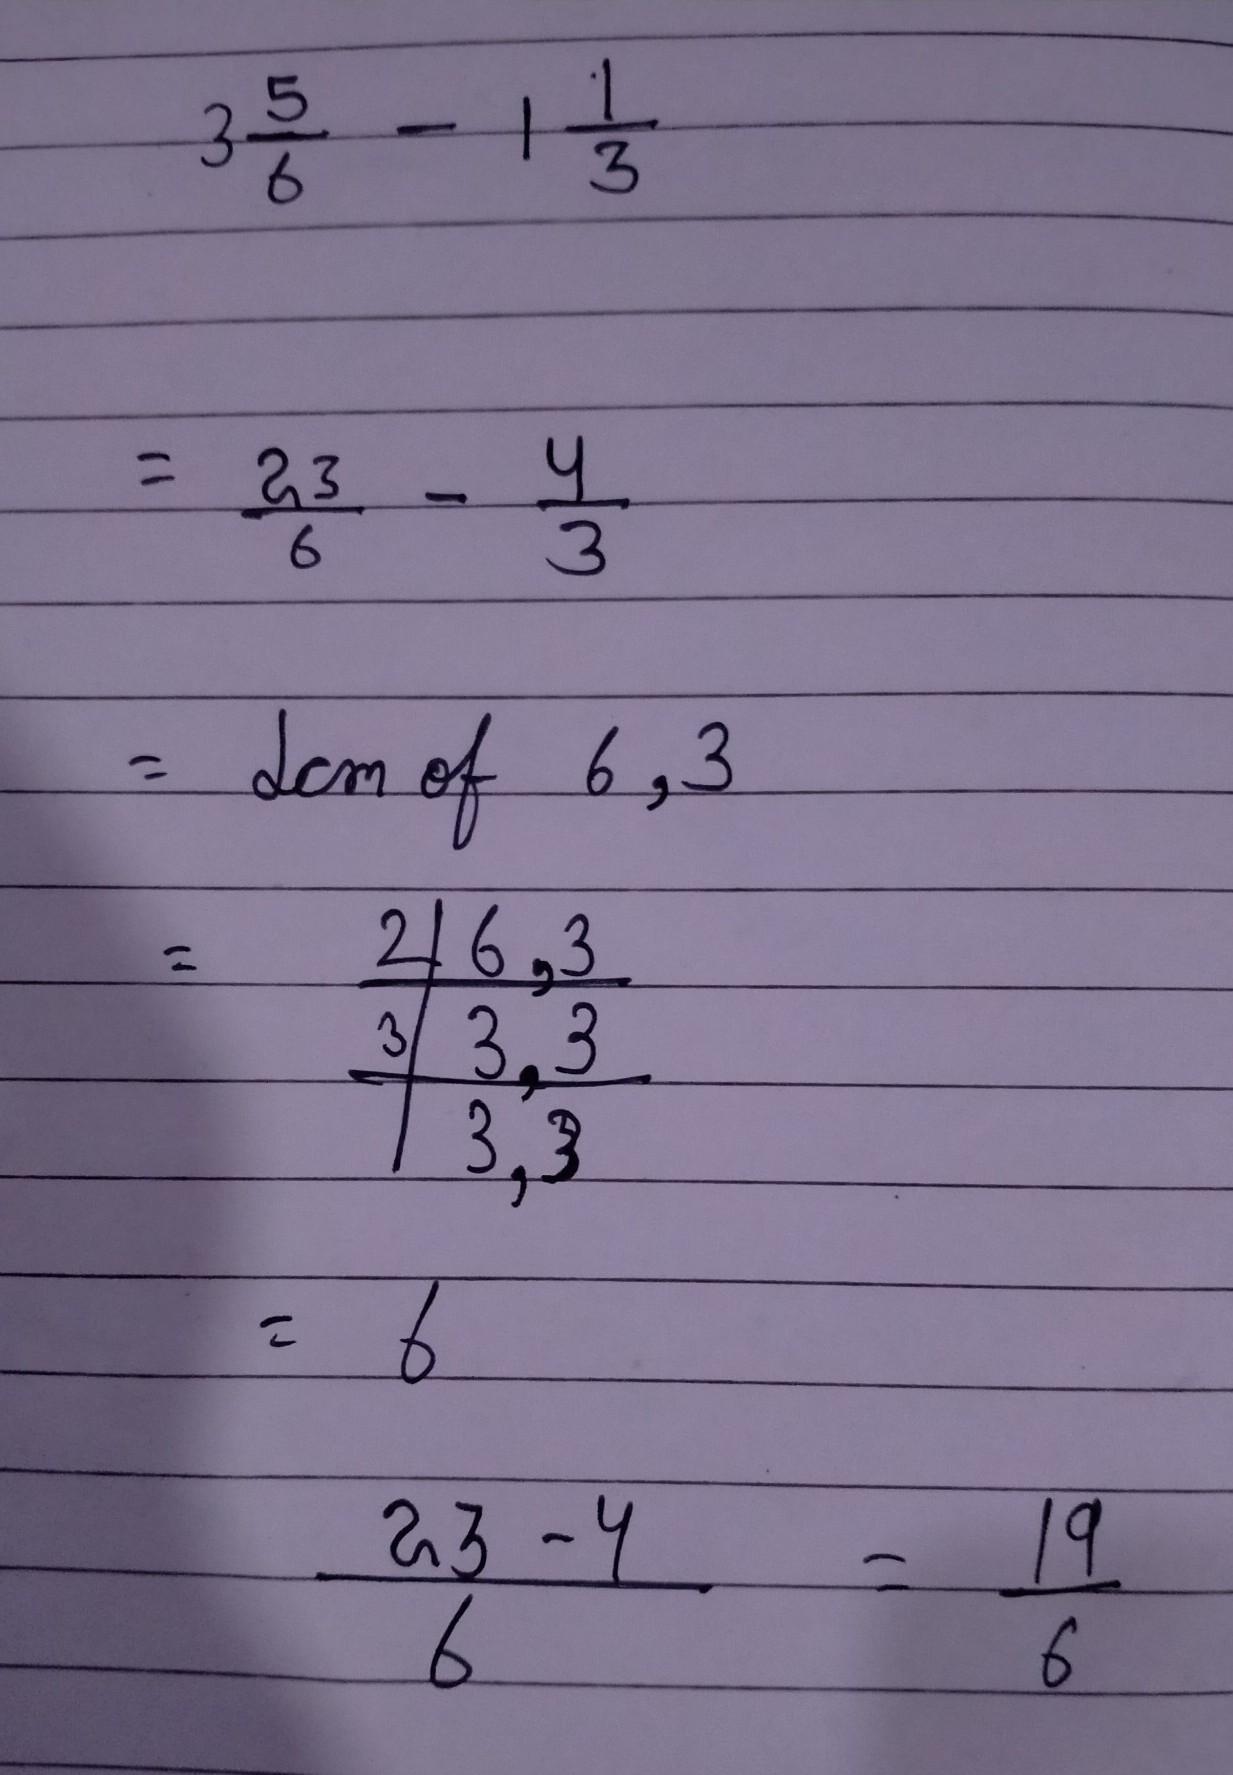 3 5/6 - 1 1/3
= 23/6 - 4/3
= Lcm of 6,3
= 2| 6,3
3| 3,3
| 3,3
= 6
23-4/6 = 19/6